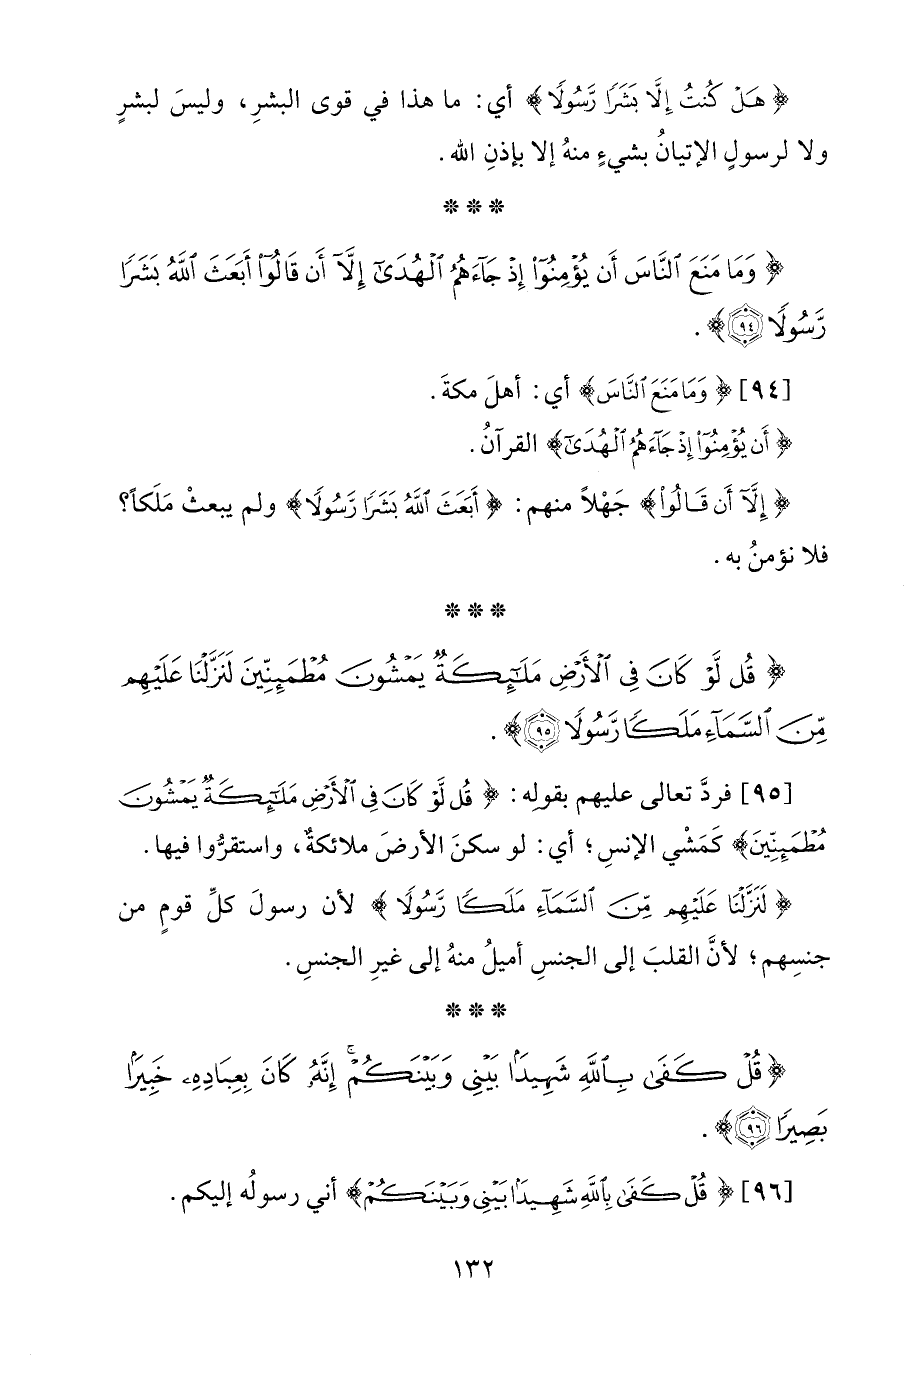 ﴿ هَلْ كُنتُ إِلَّا بَشَرًا رَّسُولًا ﴾ أي: ما هذا في قوى البشرِ، وليسَ لبشرٍ
ولا لرسولٍ الإتيانُ بشيءٍ منهُ إلا بإذنِ الله.
* * *
﴿ وَمَا مَنَعَ ٱلنَّاسَ أَن يُؤْمِنُوٓا۟ إِذْ جَآءَهُمُ ٱلْهُدَىٰٓ إِلَّآ أَن قَالُوٓا۟ أَبَعَثَ ٱللَّهُ بَشَرًا
رَّسُولًا ٩٤ ﴾.
[٩٤] ﴿ وَمَا مَنَعَ ٱلنَّاسَ ﴾ أي: أهلَ مكةَ.
﴿ أَن يُؤْمِنُوٓا۟ إِذْ جَآءَهُمُ ٱلْهُدَىٰٓ ﴾ القرآنُ.
﴿ إِلَّآ أَن قَالُوٓا۟ ﴾ جَهْلاً منهم: ﴿ أَبَعَثَ ٱللَّهُ بَشَرًا رَّسُولًا ﴾ ولم يبعثْ مَلَكاً؟
فلا نؤمنُ به.
* * *
﴿ قُل لَّوْ كَانَ فِى ٱلْأَرْضِ مَلَٰٓئِكَةٌ يَمْشُونَ مُطْمَئِنِّينَ لَنَزَّلْنَا عَلَيْهِم
مِّنَ ٱلسَّمَآءِ مَلَكًا رَّسُولًا ٩٥ ﴾.
[٩٥] فردَّ تعالى عليهم بقولِه: ﴿ قُل لَّوْ كَانَ فِى ٱلْأَرْضِ مَلَٰٓئِكَةٌ يَمْشُونَ
مُطْمَئِنِّينَ ﴾ كَمَشْي الإنسِ؛ أي: لو سكنَ الأرضَ ملائكةٌ، واستقرُّوا فيها.
﴿ لَنَزَّلْنَا عَلَيْهِم مِّنَ ٱلسَّمَآءِ مَلَكًا رَّسُولًا ﴾ لأن رسولَ كلِّ قومٍ من
جنسِهم؛ لأنَّ القلبَ إلى الجنسِ أميلُ منهُ إلى غيرِ الجنسِ.
* * *
﴿ قُلْ كَفَىٰ بِٱللَّهِ شَهِيدًۢا بَيْنِى وَبَيْنَكُمْ ۚ إِنَّهُۥ كَانَ بِعِبَادِهِۦ خَبِيرًۢا
بَصِيرًا ٩٦ ﴾.
[٩٦] ﴿ قُلْ كَفَىٰ بِٱللَّهِ شَهِيدًۢا بَيْنِى وَبَيْنَكُمْ ﴾ أني رسولُه إليكم.
١٣٢